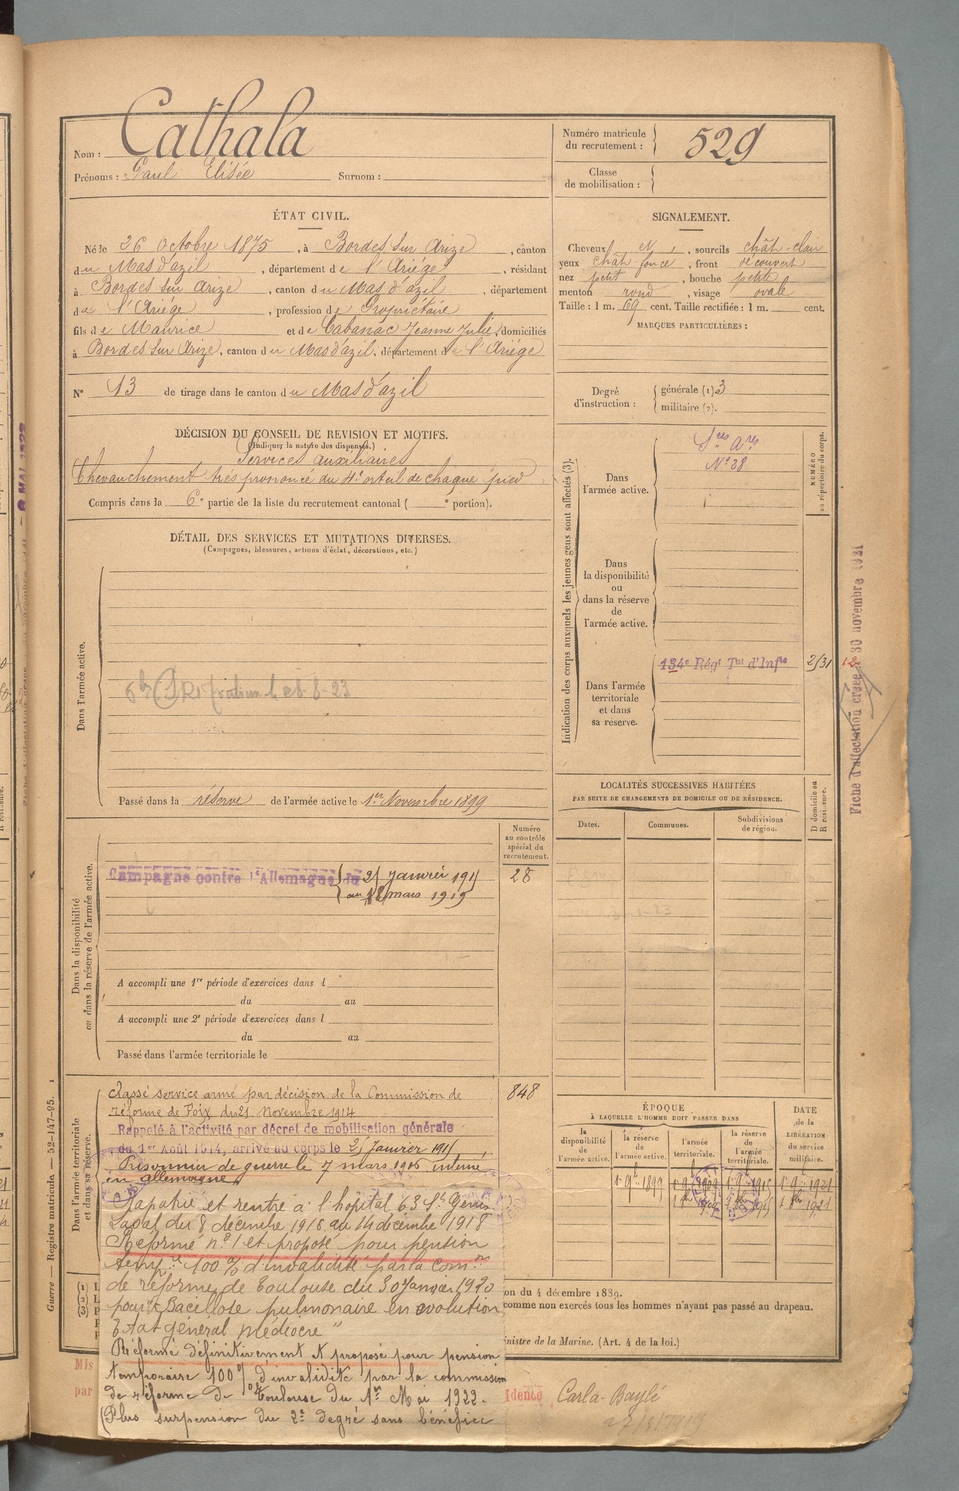 Nom : Cathala
Prénoms : Paul Elisée Surnom :
Numéro matricule du recrutement : 529
Classe de mobilisation :
ÉTAT CIVIL.
Né le 26 Octobre 1875, à Bordes sur Arize, canton
du Mas d'azil, département de l'Ariége, résidant
à Bordes sur Arize, canton du Mas d'azil, département
de l'Ariége, profession de Propriétaire
fils de Maurice et de Cabanac Jeanne Julie, domiciliés
à Bordes sur Arize, canton du Mas d'azil, département de l'Ariége
N° 13 de tirage dans le canton du Mas d'azil
SIGNALEMENT.
Cheveux N, sourcils chât-clair
yeux chât-foncé, front découvert
nez petit, bouche petite
menton rond, visage ovale
Taille : 1 m. 69 cent. Taille rectifiée : 1 m. cent.
MARQUES PARTICULIÈRES :
Degré d'instruction : générale (1) 3
militaire (2).
DÉCISION DU CONSEIL DE REVISION ET MOTIFS.
(Indiquer la nature des dispenses.)
Services auxiliaires
Chevauchement très prononcé du 4e orteil de chaque pied
Compris dans la 6e partie de la liste du recrutement cantonal ( e portion).
Indication des corps auxquels les jeunes gens sont affectés (3).
NUMÉRO au répertoire du corps.
Dans l'armée active.
Sces Ares
N° 28
Dans la disponibilité ou dans la réserve de l'armée active.
Dans l'armée territoriale et dans sa réserve.
134e Régt Tal d'Infie 2/31
Fiche d'affectation créée 30 novembre 1921
DÉTAIL DES SERVICES ET MUTATIONS DIVERSES.
(Campagnes, blessures, actions d'éclat, décorations, etc.)
Dans l'armée active.
Passé dans la réserve de l'armée active le 1er Novembre 1899
Numéro au contrôle spécial du recrutement.
Dans la disponibilité ou dans la réserve de l'armée active.
Campagne contre l'Allemagne du 21 Janvier 1915 28
au 12 mars 1919
A accompli une 1re période d'exercices dans l
du au
A accompli une 2e période d'exercices dans l
du au
Passé dans l'armée territoriale le
LOCALITÉS SUCCESSIVES HABITÉES
PAR SUITE DE CHANGEMENTS DE DOMICILE OU DE RÉSIDENCE.
Dates. Communes. Subdivisions de région. D domicile ou R résidence.
Dans l'armée territoriale et dans sa réserve.
Classé service armé par décision de la Commission de 848
réforme de Foix du 21 Novembre 1914
Rappelé à l'activité par décret de mobilisation générale
du 1er Août 1914, arrivé au corps le 21 Janvier 1915
Prisonnier de guerre le 7 mars 1916 interné
en allemagne
Rapatrié et rentré à l'hôpital 63 St Genis
Laval du 8 décembre 1918 au 14 décembre 1918
Réformé n° 1 et proposé pour pension
100% d'invalidité par la Comon
de réforme de Toulouse du 30 Janvier 1920
pour "Bacillose pulmonaire en évolution
Etat général médiocre"
Réformé définitivement et proposé pour pension
temporaire 100% d'invalidité par la commission
de réforme de Toulouse du 1er Mai 1922.
(Plus surpension du 2e degré sans bénéfice
ÉPOQUE
À LAQUELLE L'HOMME DOIT PASSER DANS
DATE de la LIBÉRATION du service militaire.
la disponibilité de l'armée active. la réserve de l'armée active. l'armée territoriale. la réserve de l'armée territoriale.
1 9bre 1899
on du 4 décembre 1889.
comme non exercés tous les hommes n'ayant pas passé au drapeau.
nistre de la Marine. (Art. 4 de la loi.)
(1) L
(2) L
(3)
Mis
par
idence Carla-Bayle
Guerre — Registre matricule. — 52-147-95.